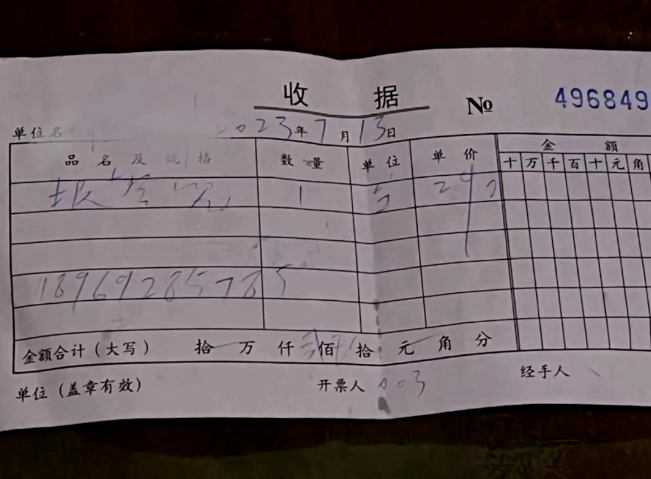 收据 № 496849
单位名
2023年7月13日
金额
品名及规格 数量 单位 单价 十 万 千 百 十 元 角
1 290
18969285785
金额合计（大写） 拾 万 仟 佰 拾 元 角 分
单位（盖章有效） 开票人 003 经手人